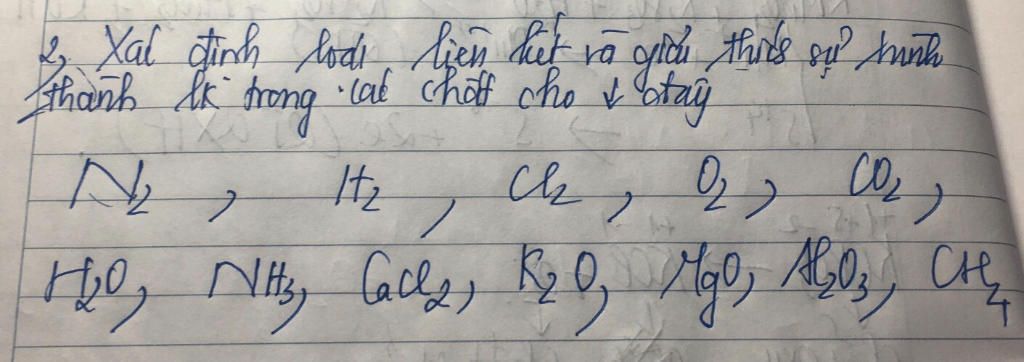 2, Xác định loại liên kết và giải thích sự hình
thành lk trong các chất cho ↓ đây
N₂, H₂, Cl₂, O₂, CO₂,
H₂O, NH₃, CaCl₂, K₂O, MgO, Al₂O₃, CH₄